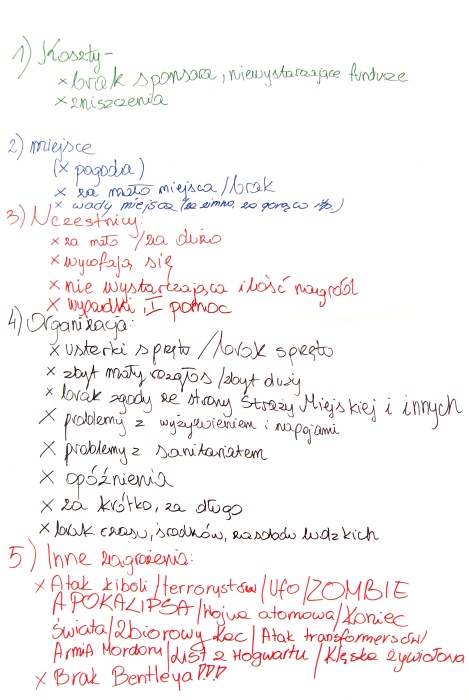 1) Koszty -
× brak sponsora, niewystarczające fundusze
× zniszczenia
2) miejsce
(× pogoda)
× za mało miejsca / brak
× wady miejsca (za zimno, za gorąco itp.)
3) Uczestnicy:
× za mało / za dużo
× wycofają się
× nie wystarczająca ilość nagród
× wypadki, I pomoc
4) Organizacja:
× usterki sprętu / brak sprętu
× zbyt mały rozgłos / zbyt duży
× brak zgody ze strony Straży Miejskiej i innych
× problemy z wyżywieniem i napojami
× problemy z sanitariatem
× opóźnienia
× za krótko, za długo
× brak czasu, środków, zasobów ludzkich
5) Inne zagrożenia:
× Atak kiboli / terrorystów / Ufo / ZOMBIE
APOKALIPSA / Wojna atomowa / Koniec
świata / Zbiorowy kac / Atak transformersów /
Armia Mordoru / List z Hogwartu / Klęska żywiołowa
× Brak Bentleya!!!